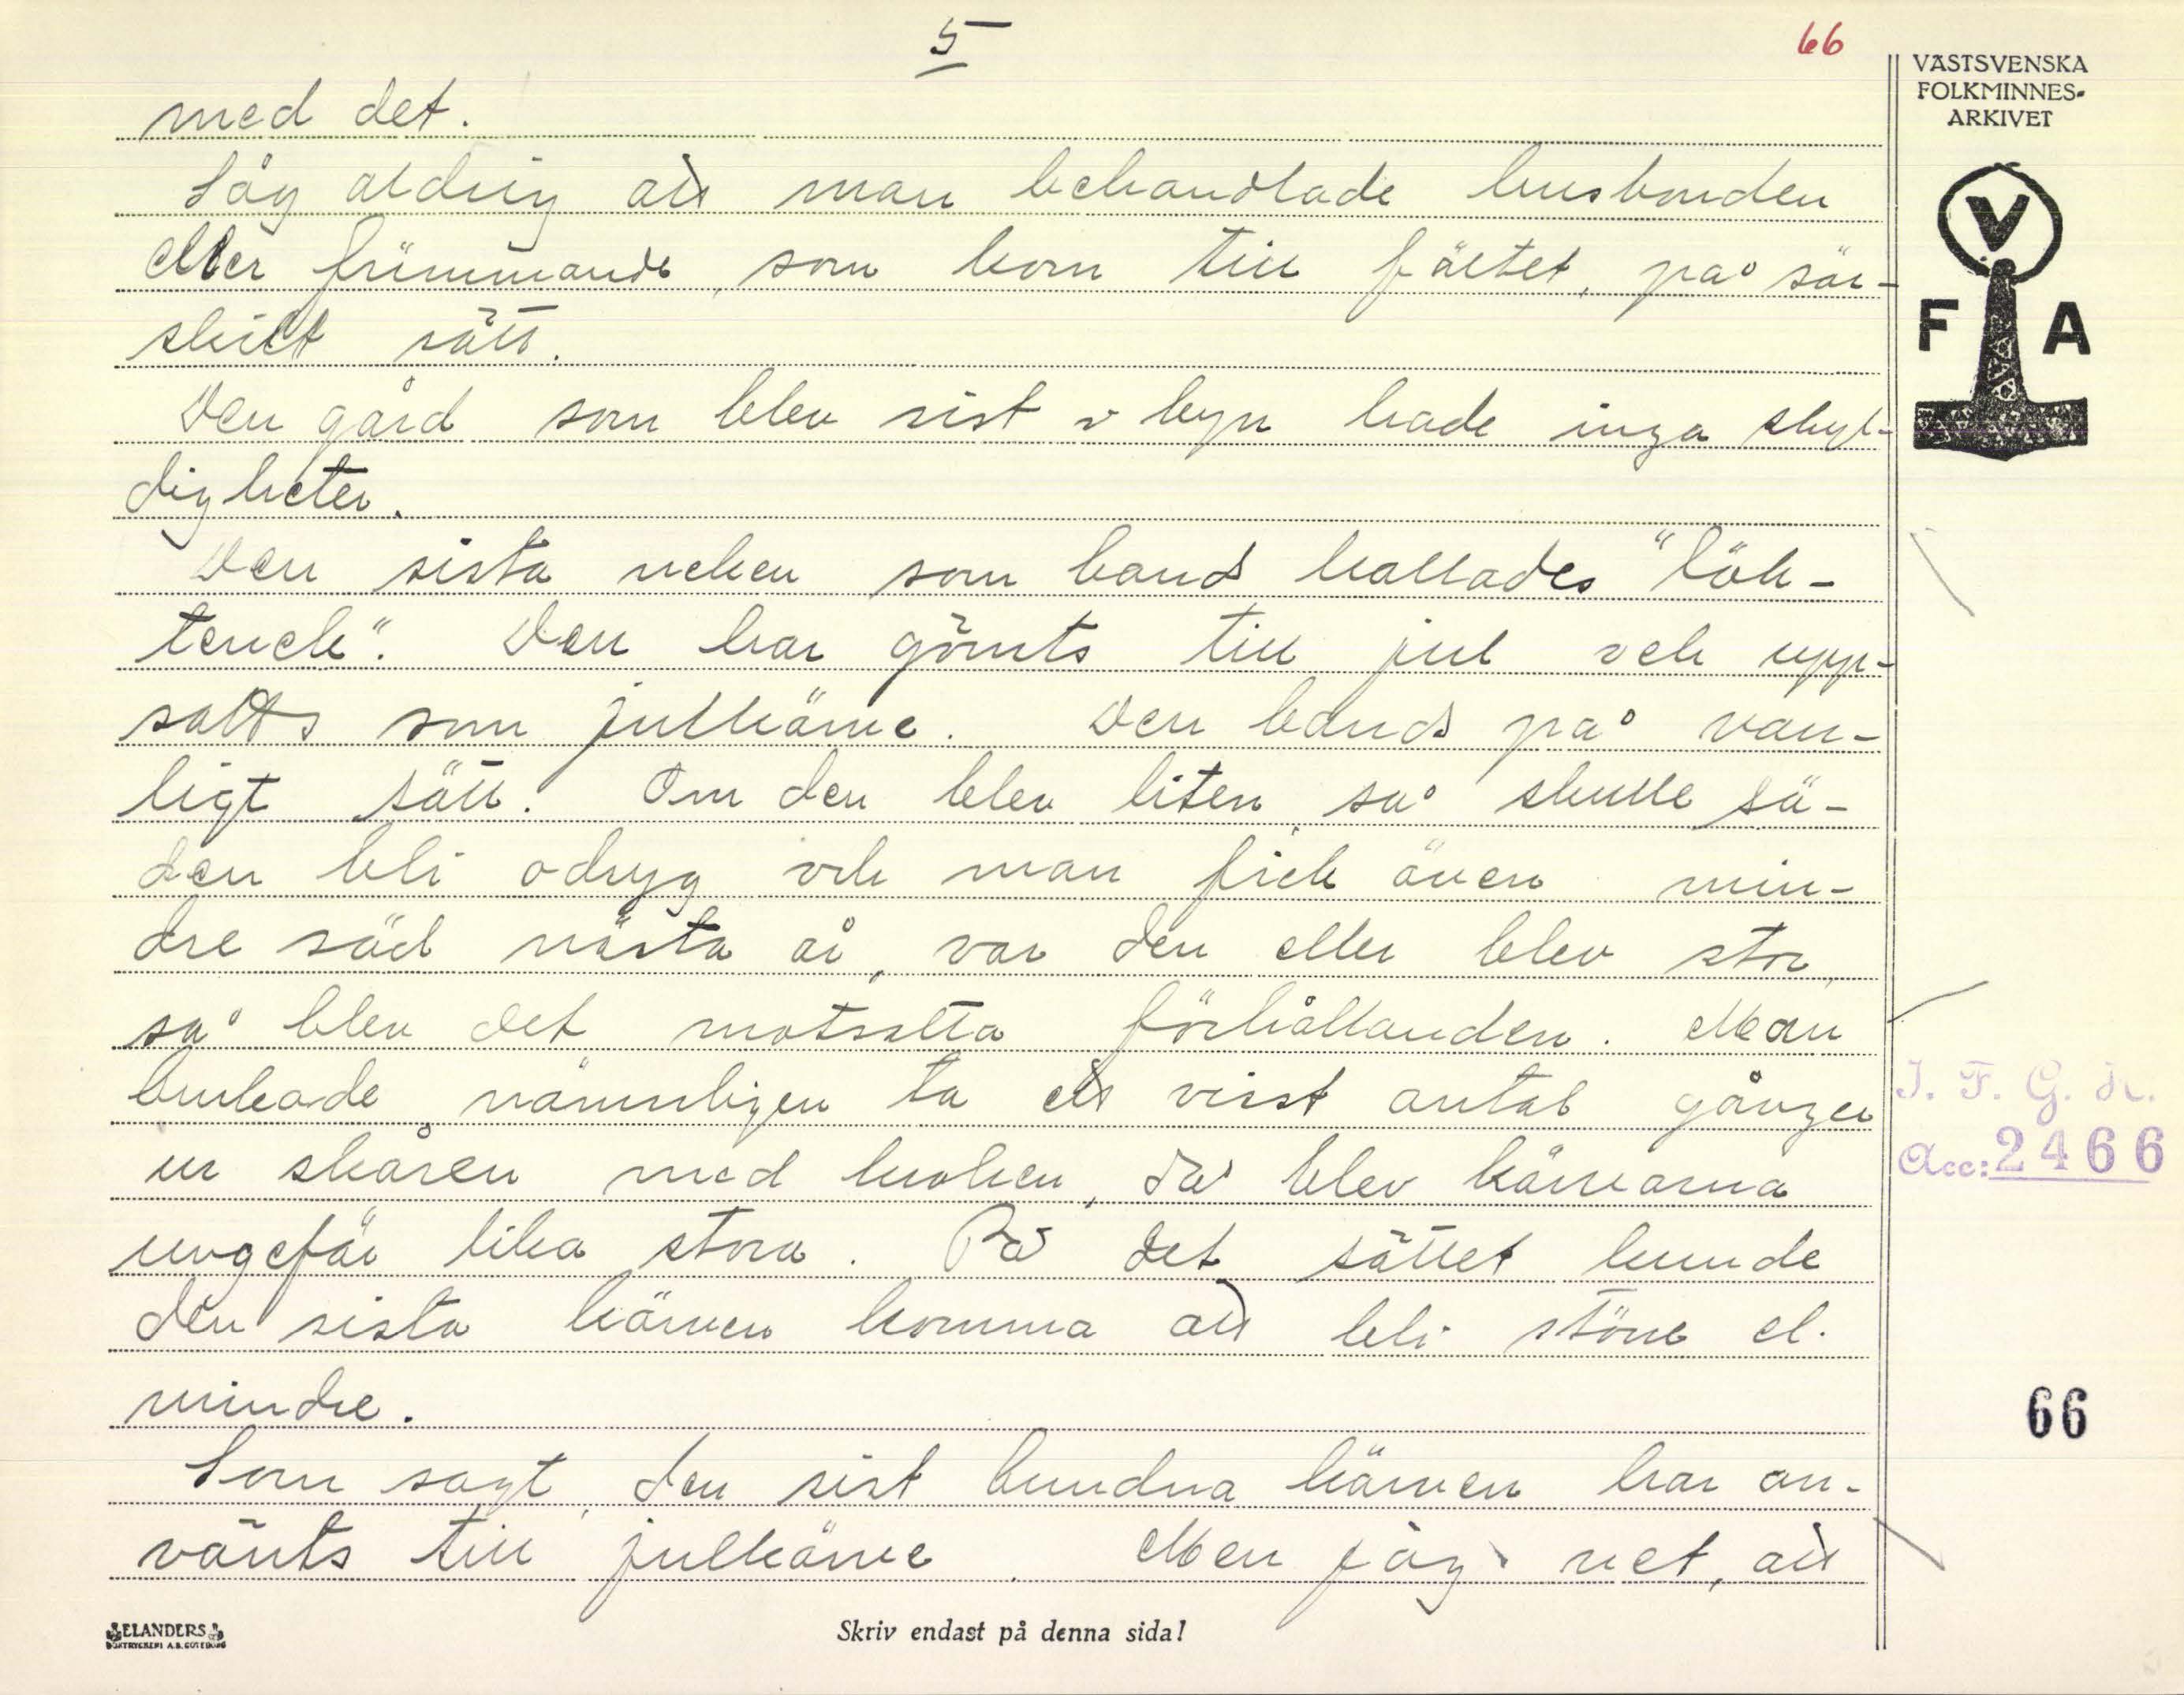 5
66
VÄSTSVENSKA
FOLKMINNES-
ARKIVET
V
F A
med det.
Såg aldrig att man behandlade husbonden
eller främmande, som kom till fältet, på sär-
skilt sätt.
Den gård som blev sist i byn hade inga skyl-
digheter.
Den sista neken som bands kallades "lök-
tenek". Den har gömts till jul och upp-
satts som julkärve. Den bands på van-
ligt sätt. Om den blev liten, så skulle sä-
den bli odryg och man fick även min-
dre säd nästa år, var den eller blev stor,
så blev det motsatta förhållanden. Man
brukade nämnligen ta ett visst antal gånger
ur skåren med kroken, då blev kärvarna
ungefär lika stora. På det sättet kunde
den sista kärven komma att bli störe el.
mindre.
Som sagt, den sist bundna kärven har an-
vänts till julkärve. Men jag vet, att
I. F. G. H.
Acc: 2466
66
ELANDERS
BOKTRYCKERI A.B. GÖTEBORG
Skriv endast på denna sida!